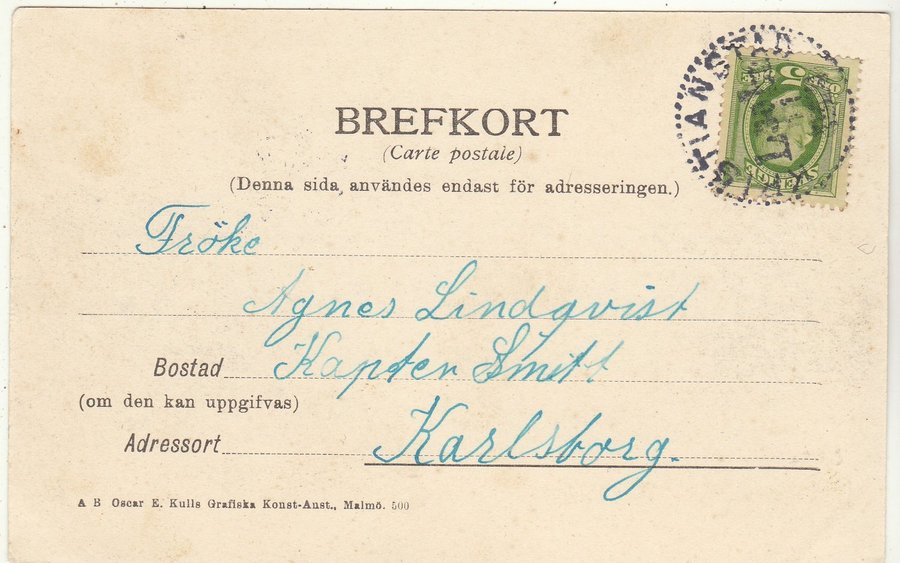 BREFKORT
(Carte postale)
(Denna sida användes endast för adresseringen.)
KRISTIANSTAD
5
SVERIGE
Fröke
Agnes Lindqvist
Bostad Kapten Smitt
(om den kan uppgifvas)
Adressort Karlsborg.
A B Oscar E. Kulls Grafiska Konst-Anst., Malmö. 500